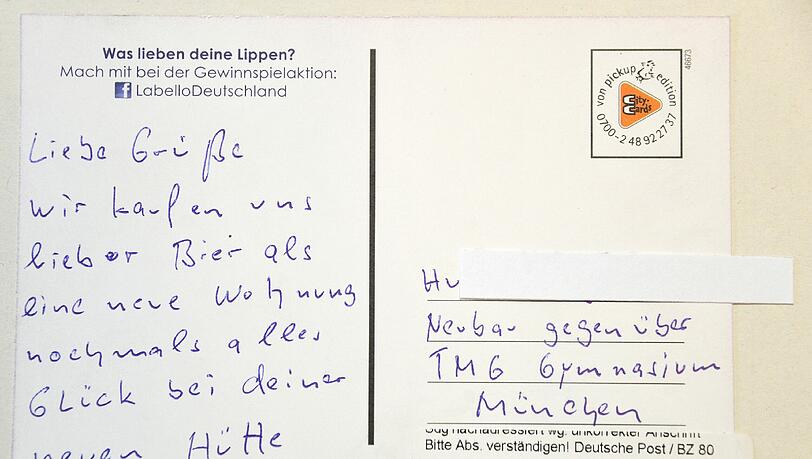 Was lieben deine Lippen?
Mach mit bei der Gewinnspielaktion:
LabelloDeutschland
Liebe Grüße
wir kaufen uns
lieber Bier als
eine neue Wohnung
nochmals alles
Glück bei deiner
neuen Hütte
von pickup edition
City-Cards
0700-2 48 92 27 37
46673
Neubau gegenüber
TMG Gymnasium
München
nachadressiert wg. unkorrekter Anschrift
Bitte Abs. verständigen! Deutsche Post / BZ 80